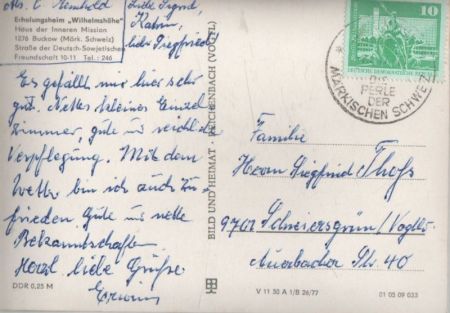 Abs. E. Reinhold
Erholungsheim „Wilhelmshöhe"
Haus der Inneren Mission
1276 Buckow (Märk. Schweiz)
Straße der Deutsch-Sowjetischen
Freundschaft 10-11 Tel.: 246
Liebe Sigrid,
Katrin,
lieber Siegfried
Es gefällt mir hier sehr
gut. Nettes kleines Einzel
zimmer, gute u. reichliche
Verpflegung. Mit dem
Wetter bin ich auch zu-
frieden. Gute u. nette
Bekanntschaften
Herzl. liebe Grüße
Erwin
DDR 0,25 M
BILD UND HEIMAT · REICHENBACH (VOGTL)
10
DEUTSCHE DEMOKRATISCHE REPUBLIK
DIE
PERLE
DER
MÄRKISCHEN SCHWEIZ
Familie
Herrn Siegfried Thoß
9701 Schreiersgrün/Vogtl.
Auerbacher Str. 40
V 11 50 A 1/B 26/77
01 05 09 033